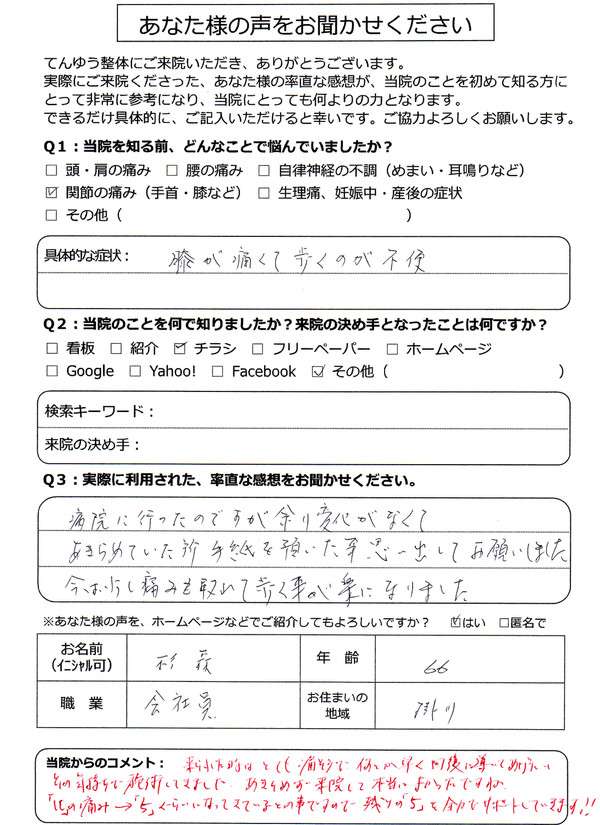 あなた様の声をお聞かせください
てんゆう整体にご来院いただき、ありがとうございます。
実際にご来院くださった、あなた様の率直な感想が、当院のことを初めて知る方に
とって非常に参考になり、当院にとっても何よりの力となります。
できるだけ具体的に、ご記入いただけると幸いです。ご協力よろしくお願いします。
Q1：当院を知る前、どんなことで悩んでいましたか？
□ 頭・肩の痛み □ 腰の痛み □ 自律神経の不調（めまい・耳鳴りなど）
☑ 関節の痛み（手首・膝など） □ 生理痛、妊娠中・産後の症状
□ その他（ ）
具体的な症状： 膝が痛くて歩くのが不便
Q2：当院のことを何で知りましたか？来院の決め手となったことは何ですか？
□ 看板 □ 紹介 ☑ チラシ □ フリーペーパー □ ホームページ
□ Google □ Yahoo! □ Facebook ☑ その他（ ）
検索キーワード：
来院の決め手：
Q3：実際に利用された、率直な感想をお聞かせください。
病院に行ったのですが余り変化がなくて
あきらめていた所手紙を頂いた事思い出してお願いしました
今は少し痛みも取れて歩く事が楽になりました
※あなた様の声を、ホームページなどでご紹介してもよろしいですか？ ☑はい □匿名で
お名前 杉森 年 齢 66
（イニシャル可）
職 業 会社員 お住まいの 掛川
地域
当院からのコメント： 来られた時はとても痛そうで
その気持ちで施術してきました。あきらめず来院して本当によかったですね。
「15」の痛み→「5」くらいになってきているとの事ですので残りの「5」を全力でサポートしていきます!!